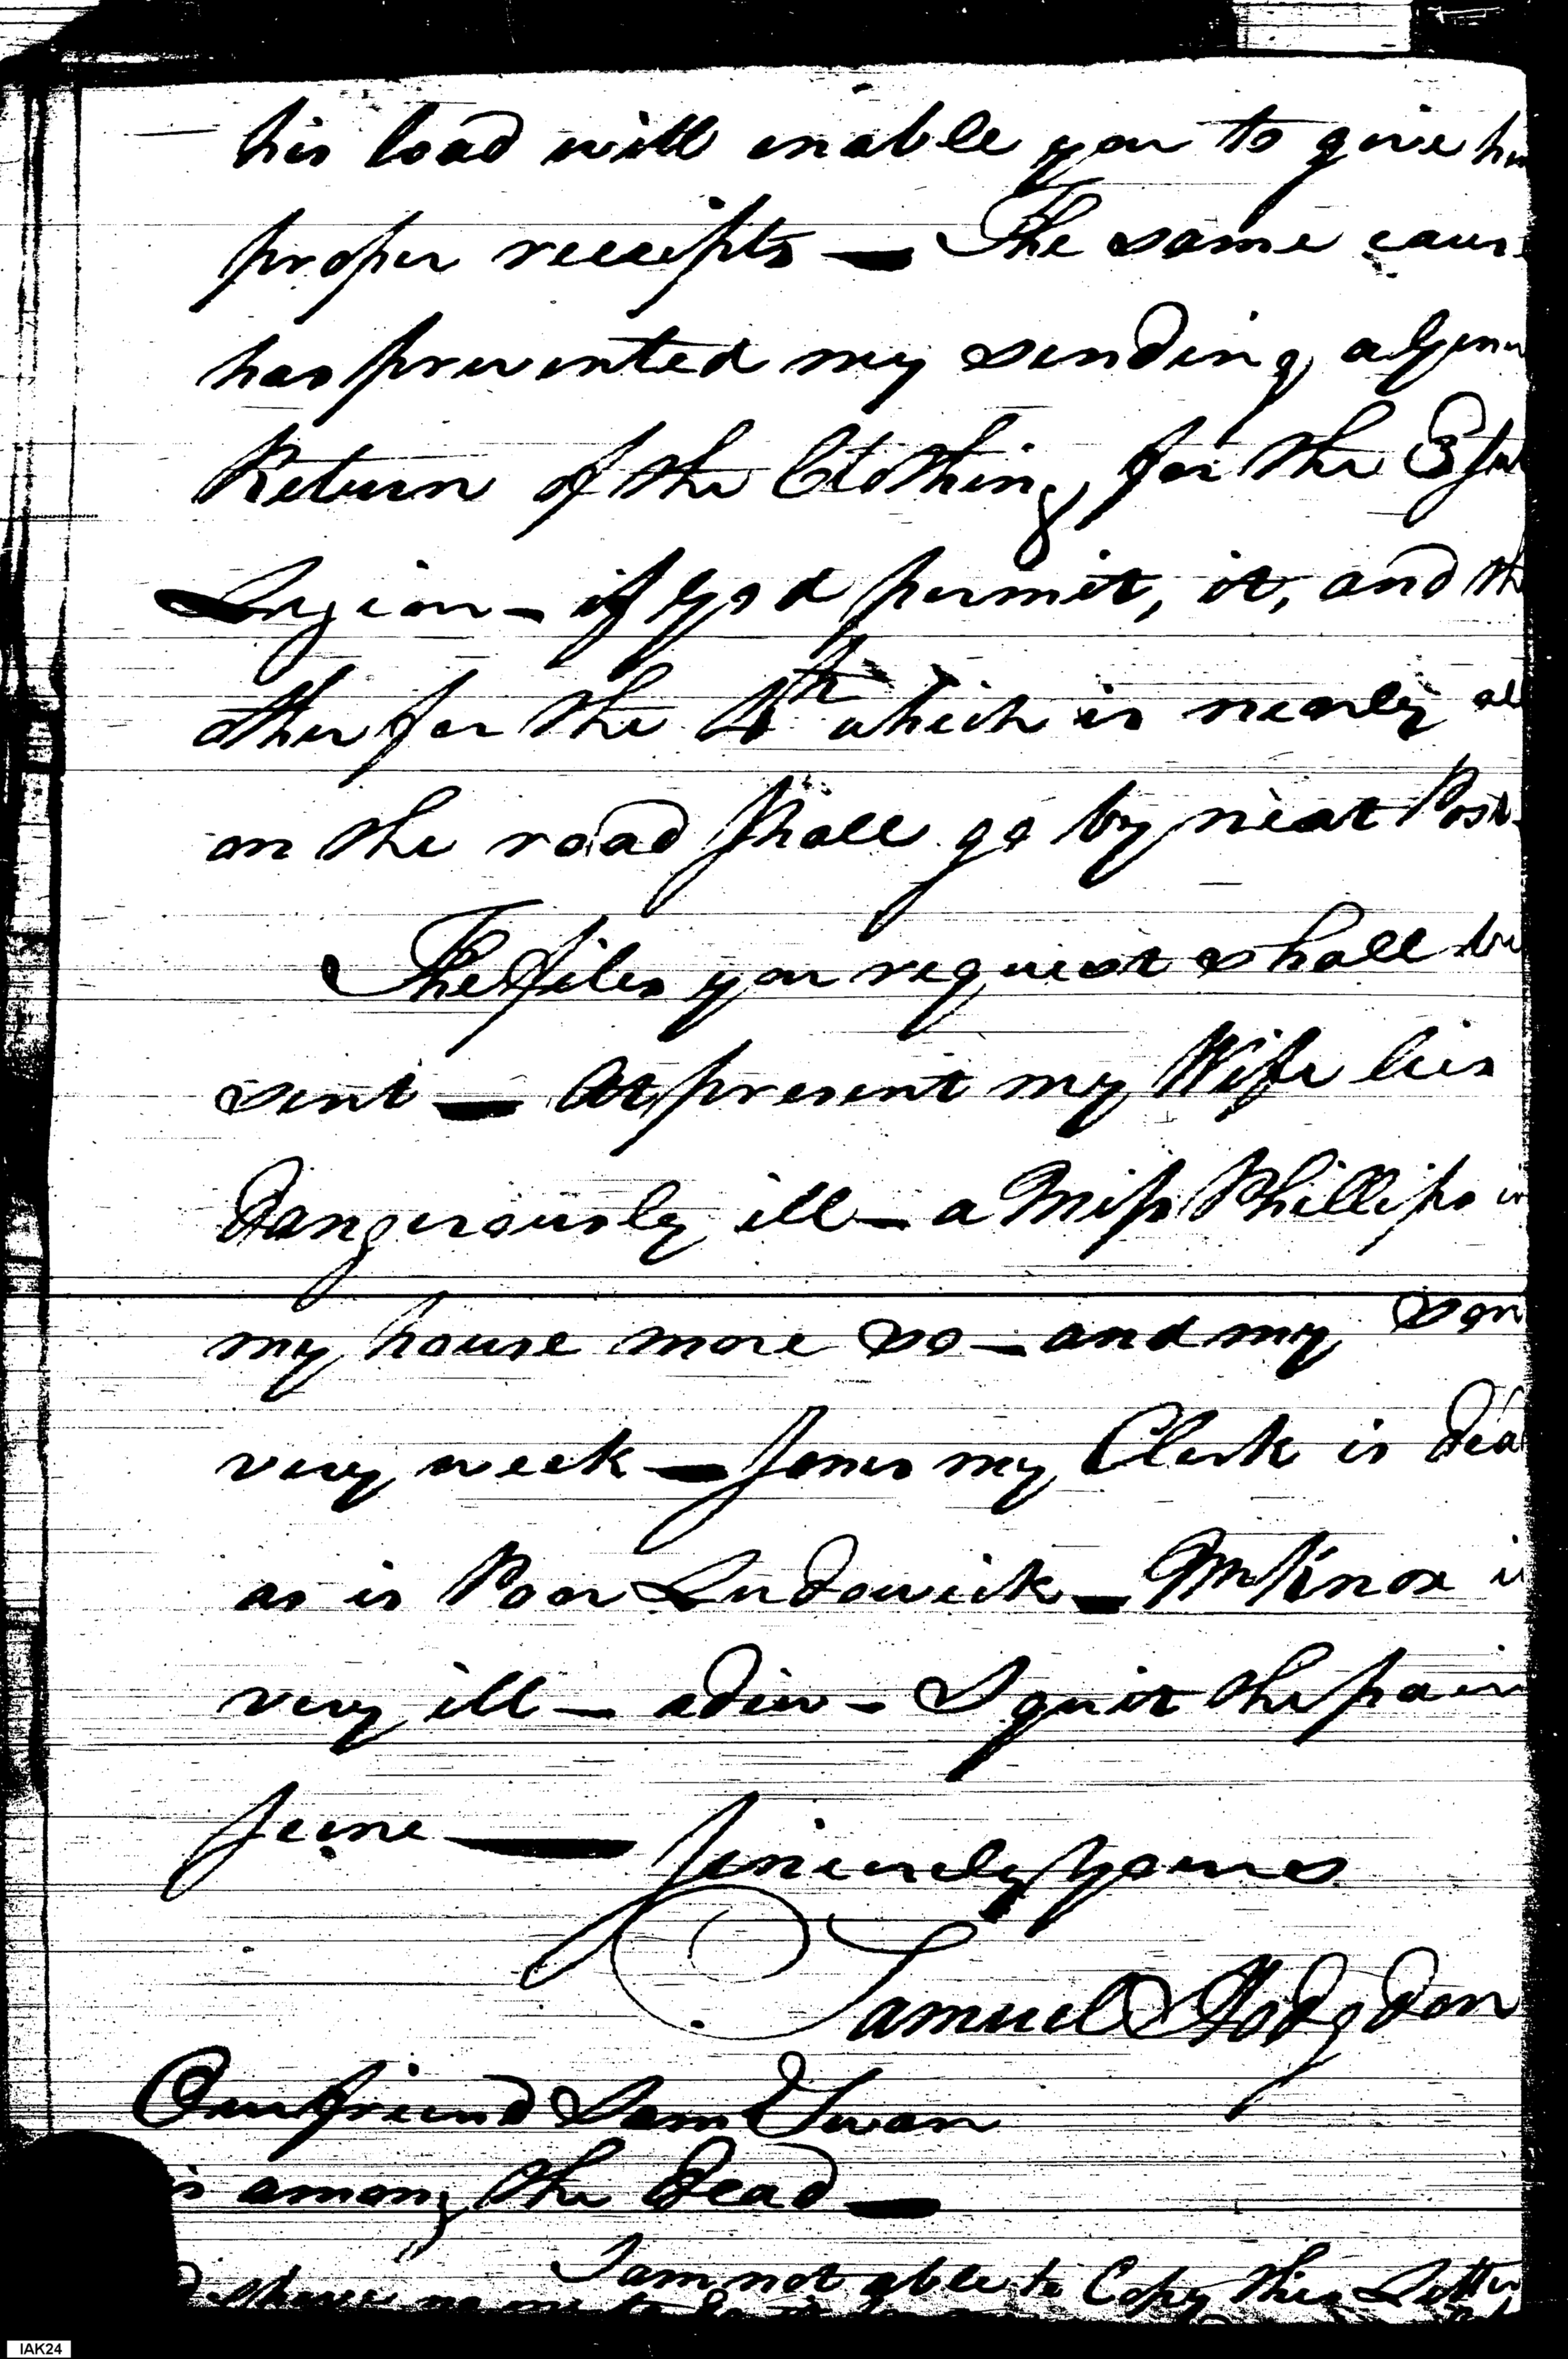 his load will enable you to give him
proper receipts — The same cause
has prevented my sending a Gener
Return of the Clothing for the 3 Sub
Legion — if God permit, it, and the
other for the 4th which is nearly all
on the road shall go by next Post.
The files you request shall be
sent — At present my Wife lies
dangerously ill — a Miss Phillips in
my house more so — and my son
very week — Jones my Clerk is dead
as is Poor Ludowick — Mr Knox is
very ill — adieu — I quit the pain
scene — Sincerely Yours
Samuel Hodgdon
Our friend Sam Swan
is among the dead —
I am not able to Copy this Letter
have no one to do it
IAK24